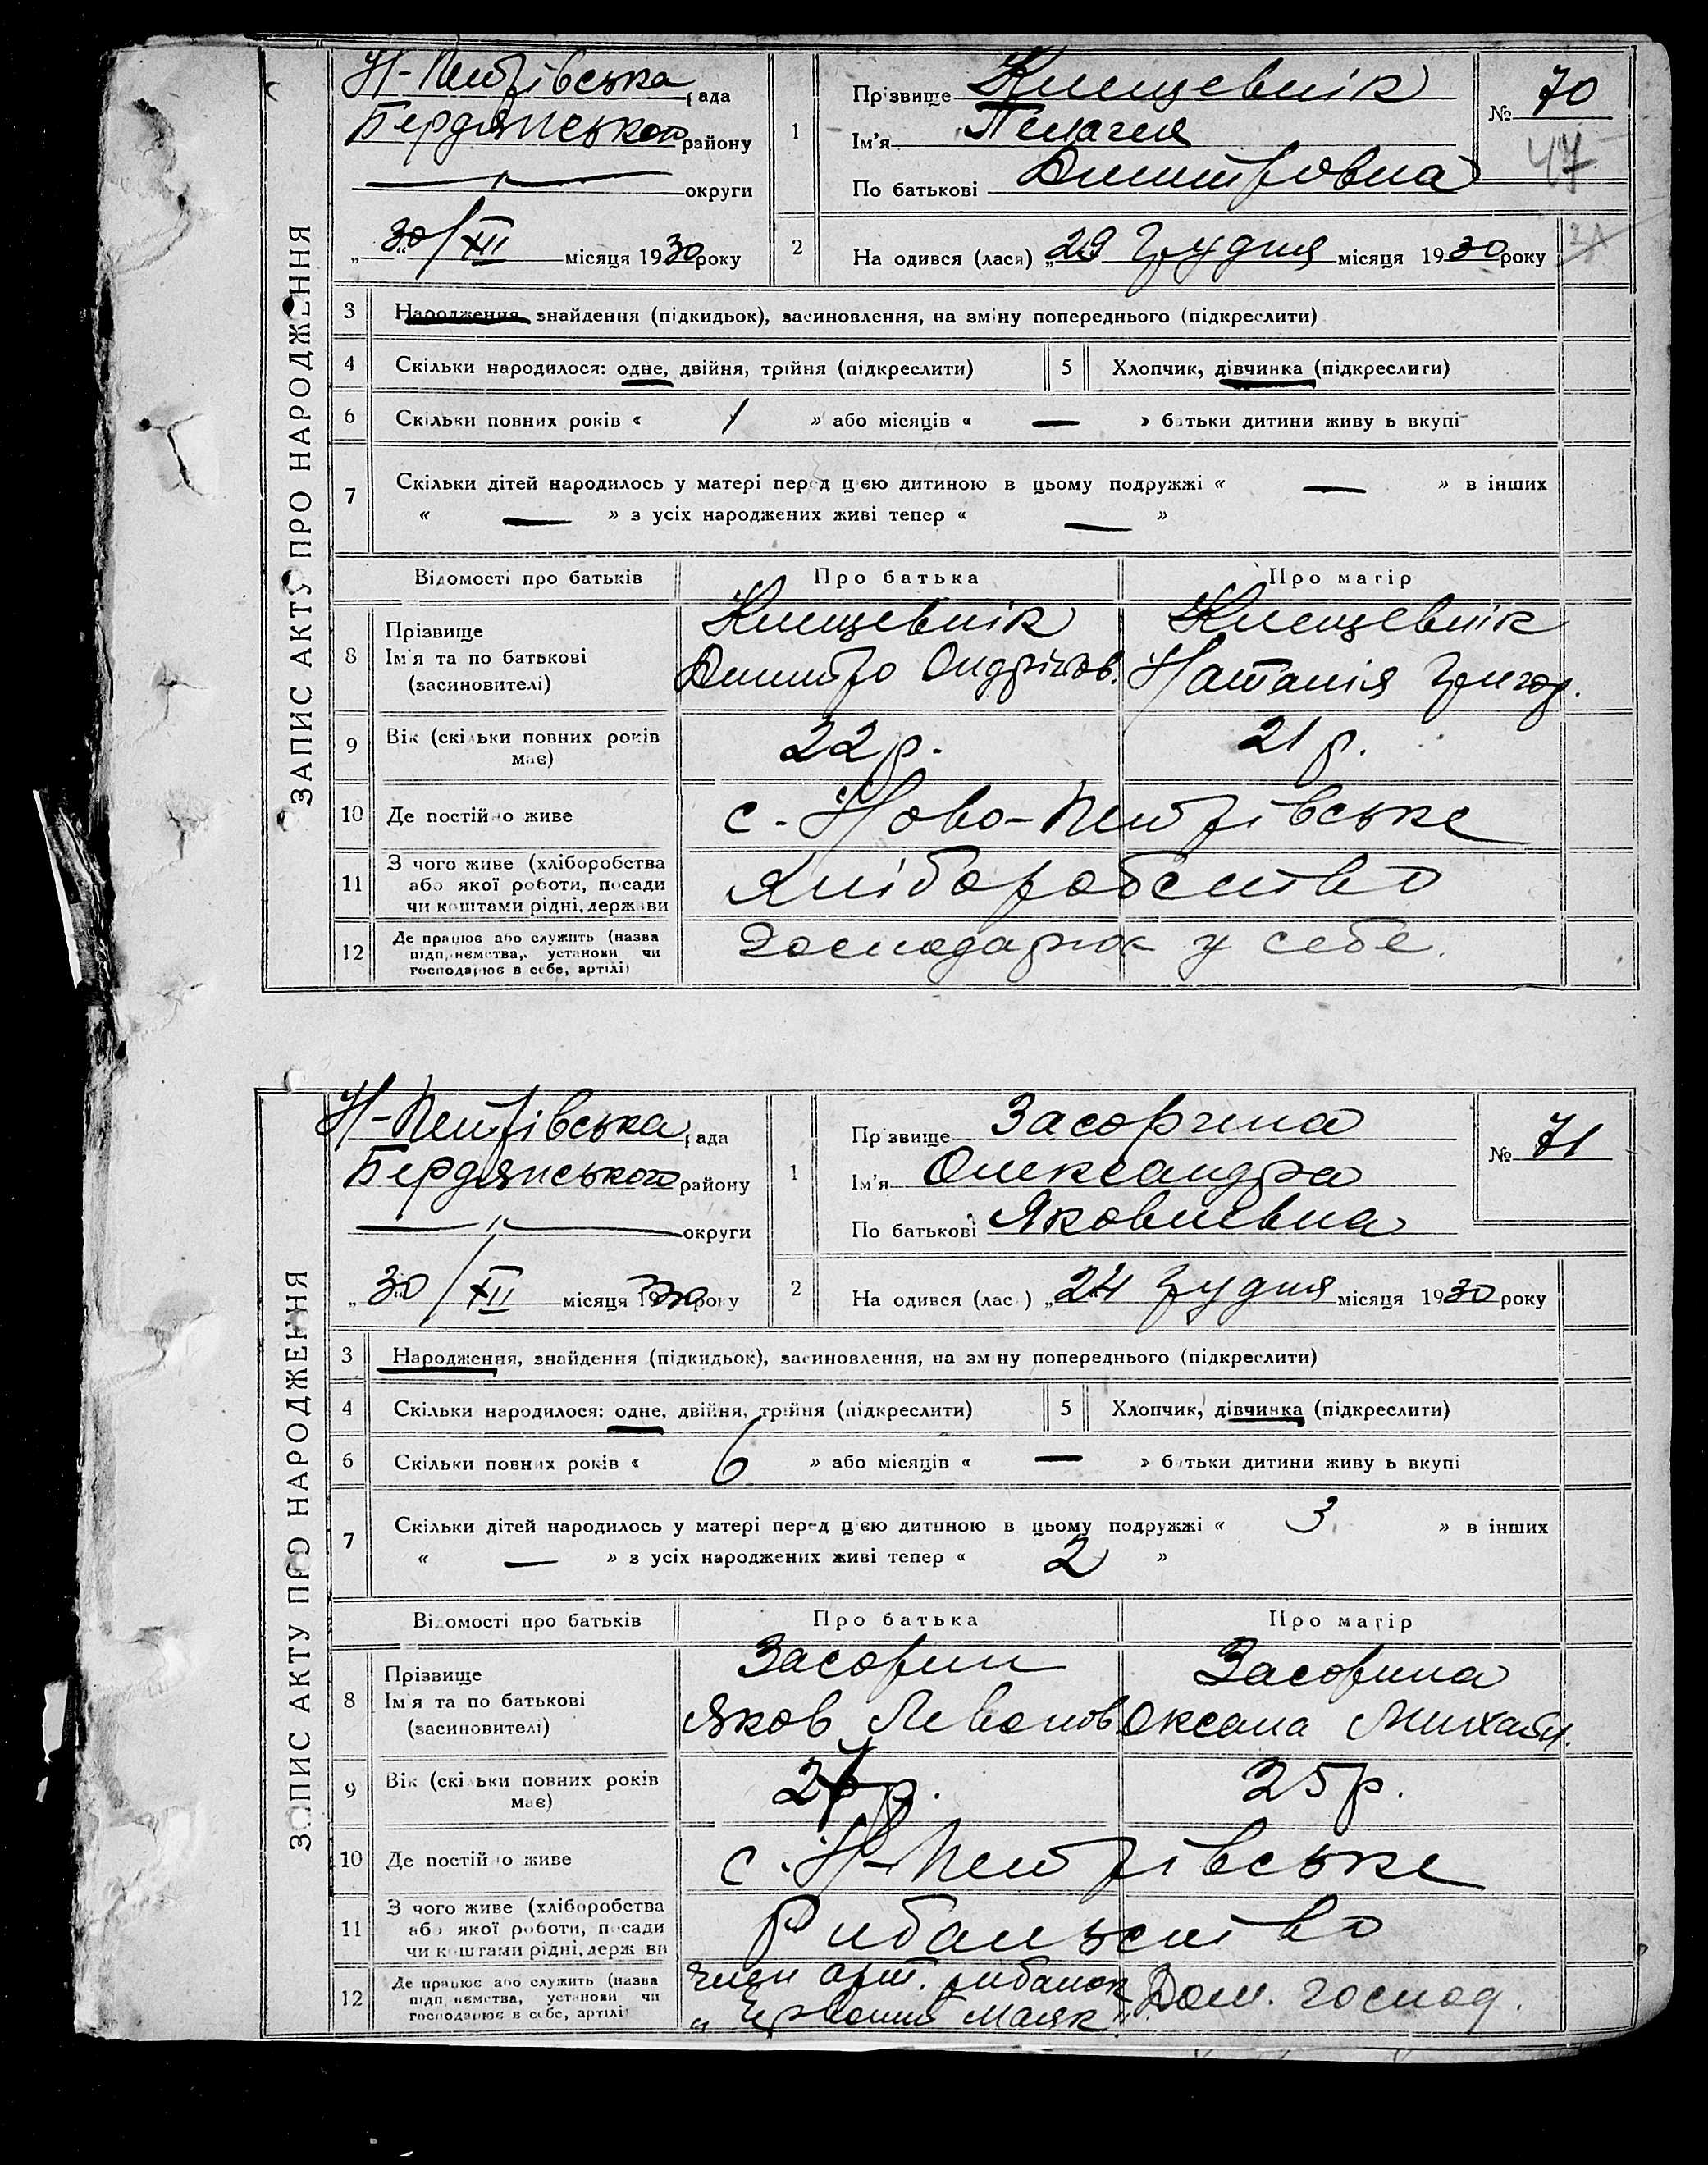 ЗАПИС АКТУ ПРО НАРОДЖЕННЯ
Н-Петрівська рада
Бердянського району
округи
„30/XII місяця 1930 року
1 Прізвище Клещевнік
Ім'я Пелагея
По батькові Дмитровна
№ 70
47
2 На одився (лася) „29 Грудня місяця 1930 року
21
3 Народження, знайдення (підкидьок), засиновлення, на зміну попереднього (підкреслити)
4 Скільки народилося: одне, двійня, трійня (підкреслити) 5 Хлопчик, дівчинка (підкреслити)
6 Скільки повних років « 1 » або місяців « — » батьки дитини живу ь вкупі
7 Скільки дітей народилось у матері перед цією дитиною в цьому подружжі « — » в інших
« — » з усіх народжених живі тепер « — »
Відомості про батьків Про батька Про матір
8 Прізвище Клещевнік Клещевнік
Ім'я та по батькові Дмитро Андрійов. Наталія Григор.
(засиновителі)
9 Вік (скільки повних років 22 р. 21 р.
має)
10 Де постійно живе с. Ново-Петрівське
11 З чого живе (хліборобства
або якої роботи, посади Хліборобство
чи коштами рідні, держави
12 Де працює або служить (назва
підприємства, установи чи Господарює у себе.
господарює в себе, артілі)
ЗАПИС АКТУ ПРО НАРОДЖЕННЯ
Н-Петрівська рада
Бердянського району
округи
„30/XII місяця 1930 року
1 Прізвище Засорина
Ім'я Олександра
По батькові Яковлевна
№ 71
2 На одився (лас ) „24 Грудня місяця 1930 року
3 Народження, знайдення (підкидьок), засиновлення, на зміну попереднього (підкреслити)
4 Скільки народилося: одне, двійня, трійня (підкреслити) 5 Хлопчик, дівчинка (підкреслити)
6 Скільки повних років « 6 » або місяців « — » батьки дитини живу ь вкупі
7 Скільки дітей народилось у матері перед цією дитиною в цьому подружжі « 3 » в інших
« — » з усіх народжених живі тепер « 2 »
Відомості про батьків Про батька Про матір
8 Прізвище Засорин Засорина
Ім'я та по батькові Яков Леонов. Оксана Михайл.
(засиновителі)
9 Вік (скільки повних років р. 25 р.
має)
10 Де постійно живе с. Н-Петрівське
11 З чого живе (хліборобства
або якої роботи, посади Рибальство
чи коштами рідні, держави
12 Де працює або служить (назва член арт. рибалок
підприємства, установи чи „Червоний Маяк" Дом. господ.
господарює в себе, артілі)